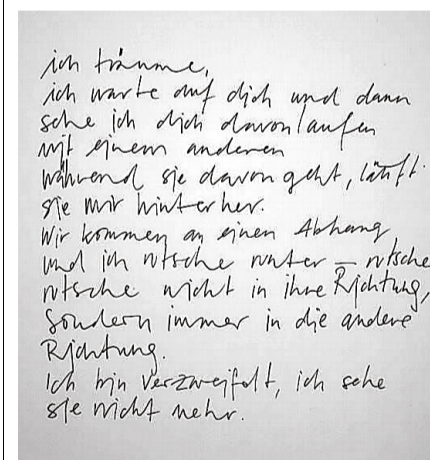 ich träume,
ich warte auf dich und dann
sehe ich dich davonlaufen
mit einem anderen
während sie davon geht, läuft
sie mir hinterher.
Wir kommen an einen Abhang
und ich rutsche runter – rutsche
rutsche nicht in ihre Richtung,
sondern immer in die andere
Richtung.
Ich bin verzweifelt, ich sehe
sie nicht mehr.